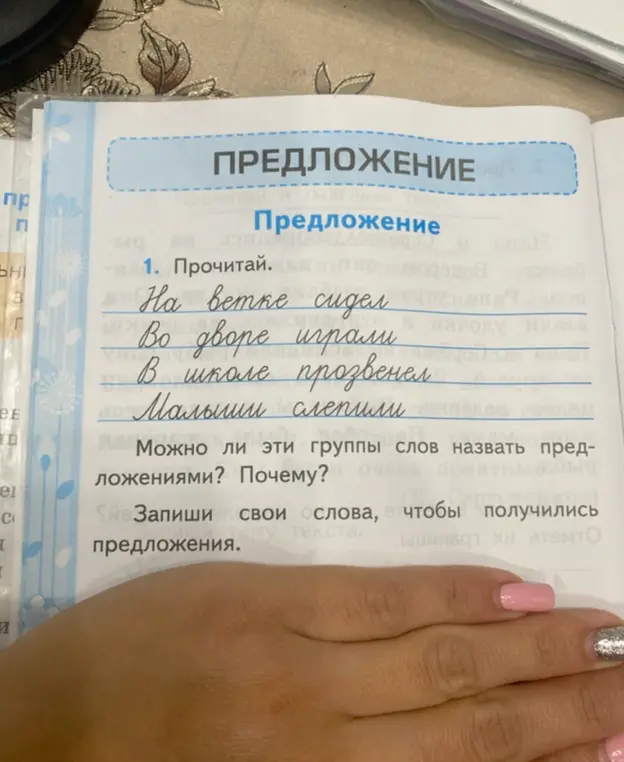 ПРЕДЛОЖЕНИЕ
Предложение
1. Прочитай.
На ветке сидел
Во дворе играли
В школе прозвенел
Малыши слепили
Можно ли эти группы слов назвать пред-
ложениями? Почему?
Запиши свои слова, чтобы получились
предложения.